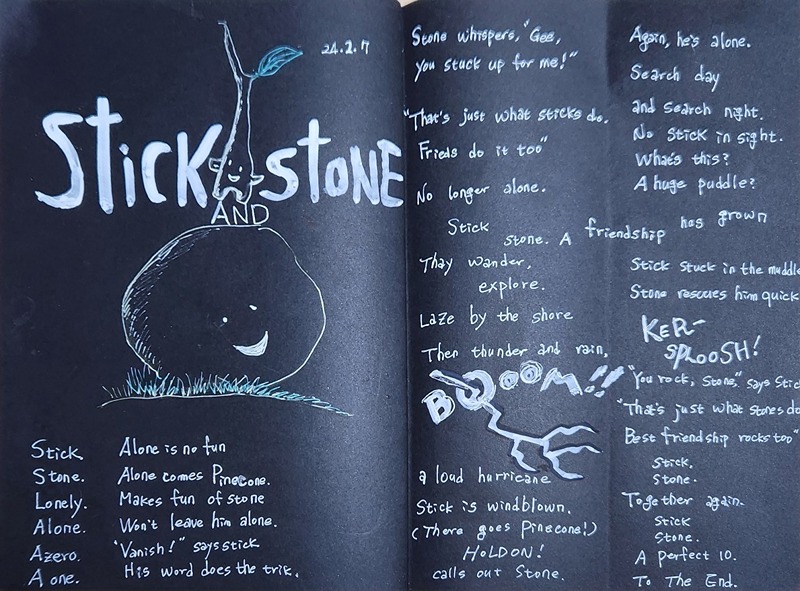 24.2.7
Stick
AND
StoNE
Stick.
Stone.
Lonely.
Alone.
Azero.
A one.
Alone is no fun
Alone comes Pinecone.
Makes fun of stone
Won't leave him alone.
"Vanish!" says stick
His word does the trik.
Stone whispers, "Gee,
you stuck up for me!"
"That's just what sticks do.
Frieds do it too"
No longer alone.
Stick
stone. A friendship has grown
Thay wander,
explore.
Laze by the shore
Then thunder and rain,
BOOOM!!
a loud hurricane
Stick is windblown.
(There goes Pinecone!)
HOLDON!
calls out Stone.
Again, he's alone.
Search day
and search night.
No Stick in sight.
What's this?
A huge puddle?
Stick stuck in the muddle
Stone rescues him quick
KER-
SPLOOSH!
"You rock, Stone." says Stic
"That's just what stones do
Best friendship rocks too"
Stick.
Stone.
Together again.
Stick
Stone.
A perfect 10.
To The End.